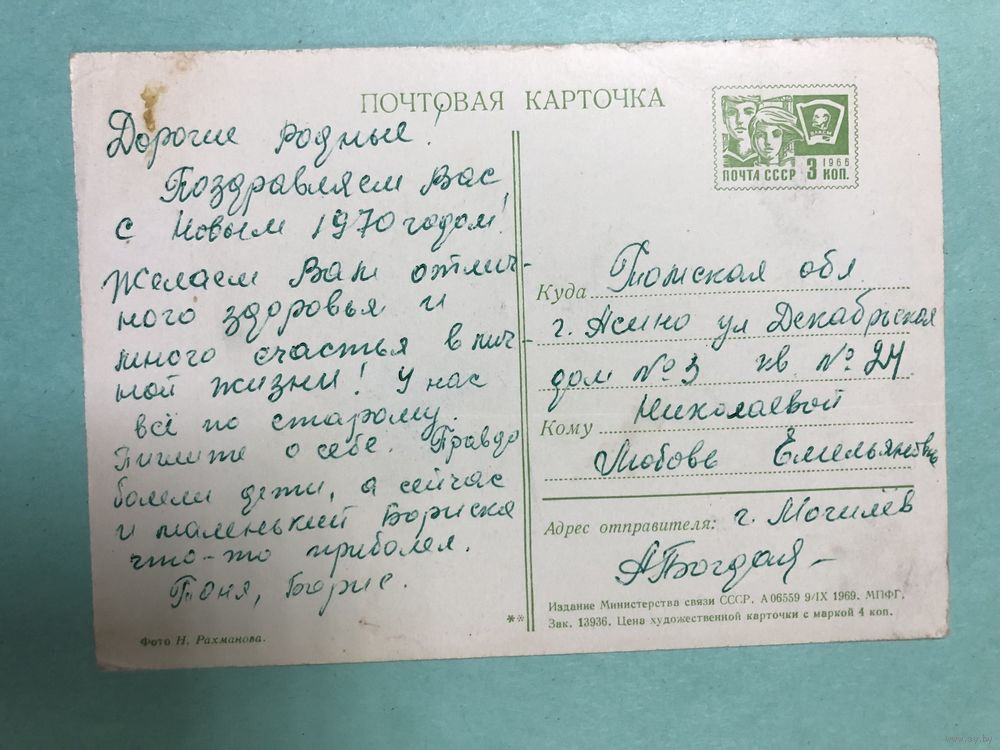 ПОЧТОВАЯ КАРТОЧКА
Дорогие родные!
Поздравляем Вас
с Новым 1970 годом!
Желаем Вам отлич-
ного здоровья и
много счастья в лич-
ной жизни! У нас
всё по старому.
Пишите о себе. Правда
болели дети, а сейчас
и маленький Бориска
что-то приболел.
Тоня, Борис.
**
Фото Н. Рахманова.
ВЛКСМ
1966
ПОЧТА СССР 3 КОП.
Куда Томская обл
г. Асино ул Декабрьская
дом № 3 кв № 24
Николаевой
Кому
Любове Емельяновне
Адрес отправителя: г. Могилёв
Издание Министерства связи СССР. А 06559 9/IX 1969. МПФГ.
Зак. 13936. Цена художественной карточки с маркой 4 коп.
www.ay.by